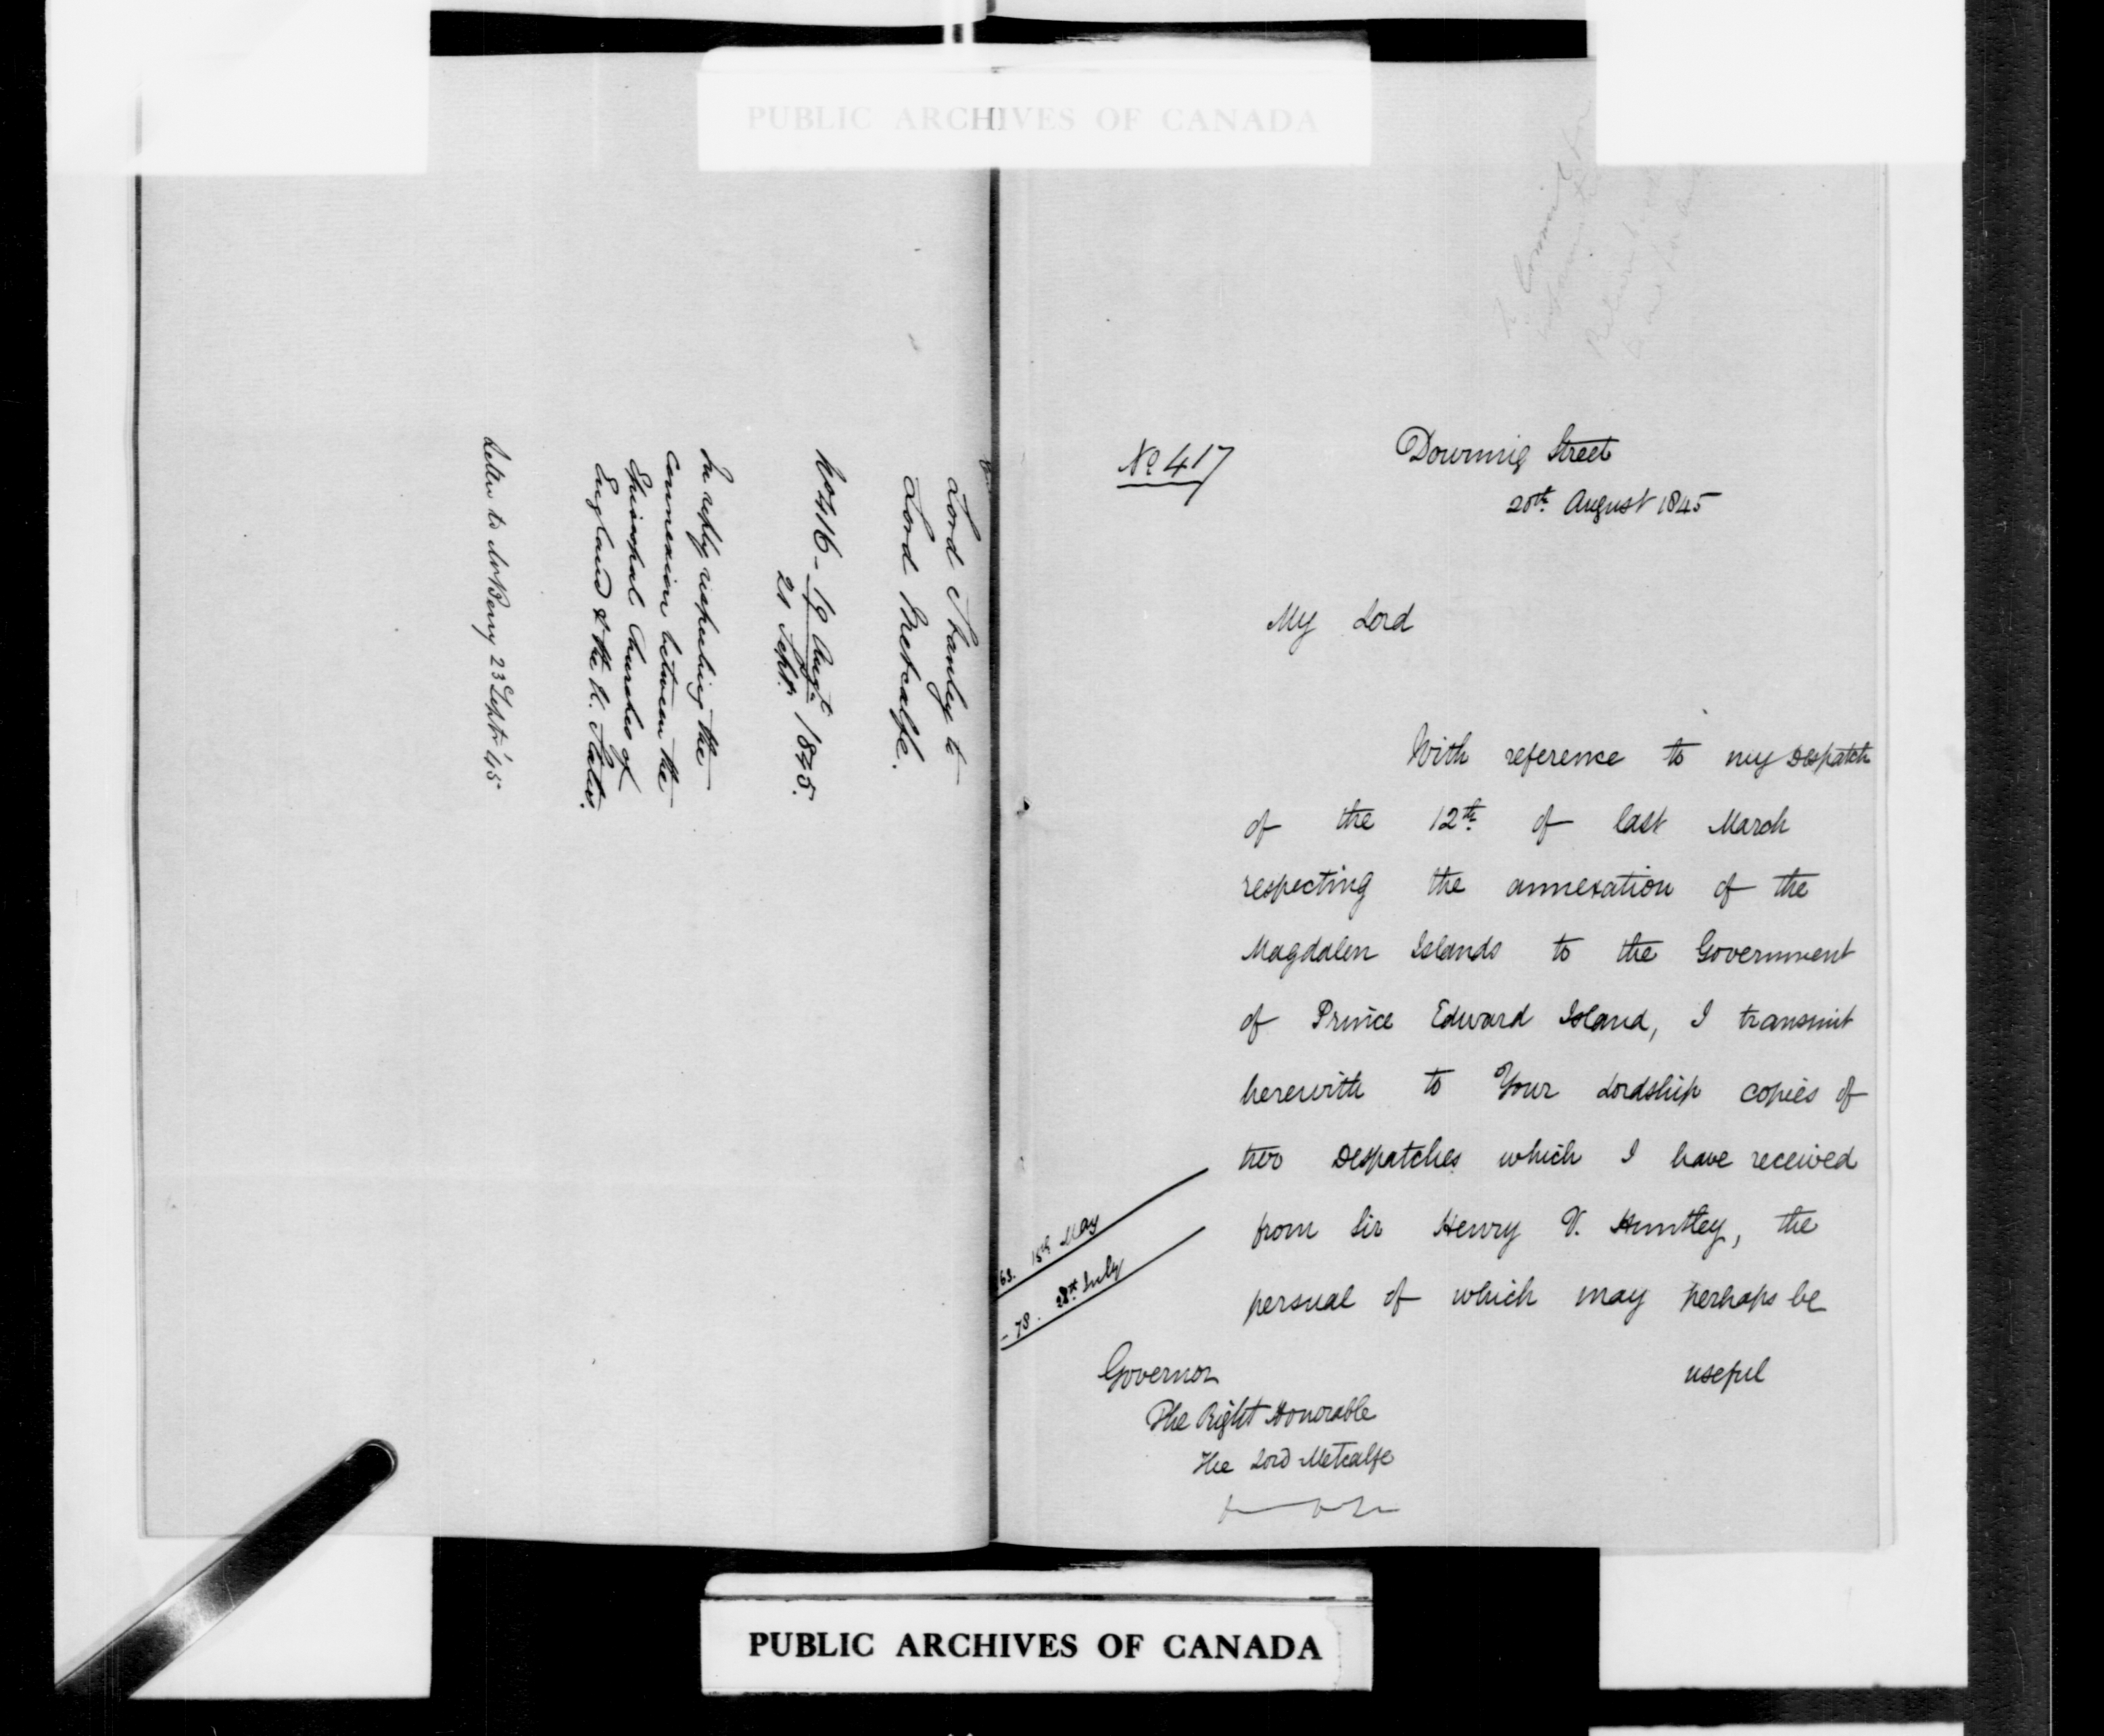 PUBLIC ARCHIVES OF CANADA
Lord Stanley to
Lord Metcalfe.
No 416 - 19 Augt. 1845.
21 Sept.
In reply respecting the
connexion between the
Episcopal Churches of
England & the U. States.
Letter to Mr Berry 23 Sept. '45
To Commit
Nº 417
Downing Street
20th August 1845
My Lord
With reference to my Despatch
of the 12th of last March
respecting the annexation of the
Magdalen Islands to the Government
of Prince Edward Island, I transmit
herewith to Your Lordship copies of
two Despatches which I have received
from Sir Henry V. Huntley, the
perusal of which may perhaps be
useful
63. 15th May
- 78. 28th July
Governor
The Right Honorable
The Lord Metcalfe
PUBLIC ARCHIVES OF CANADA